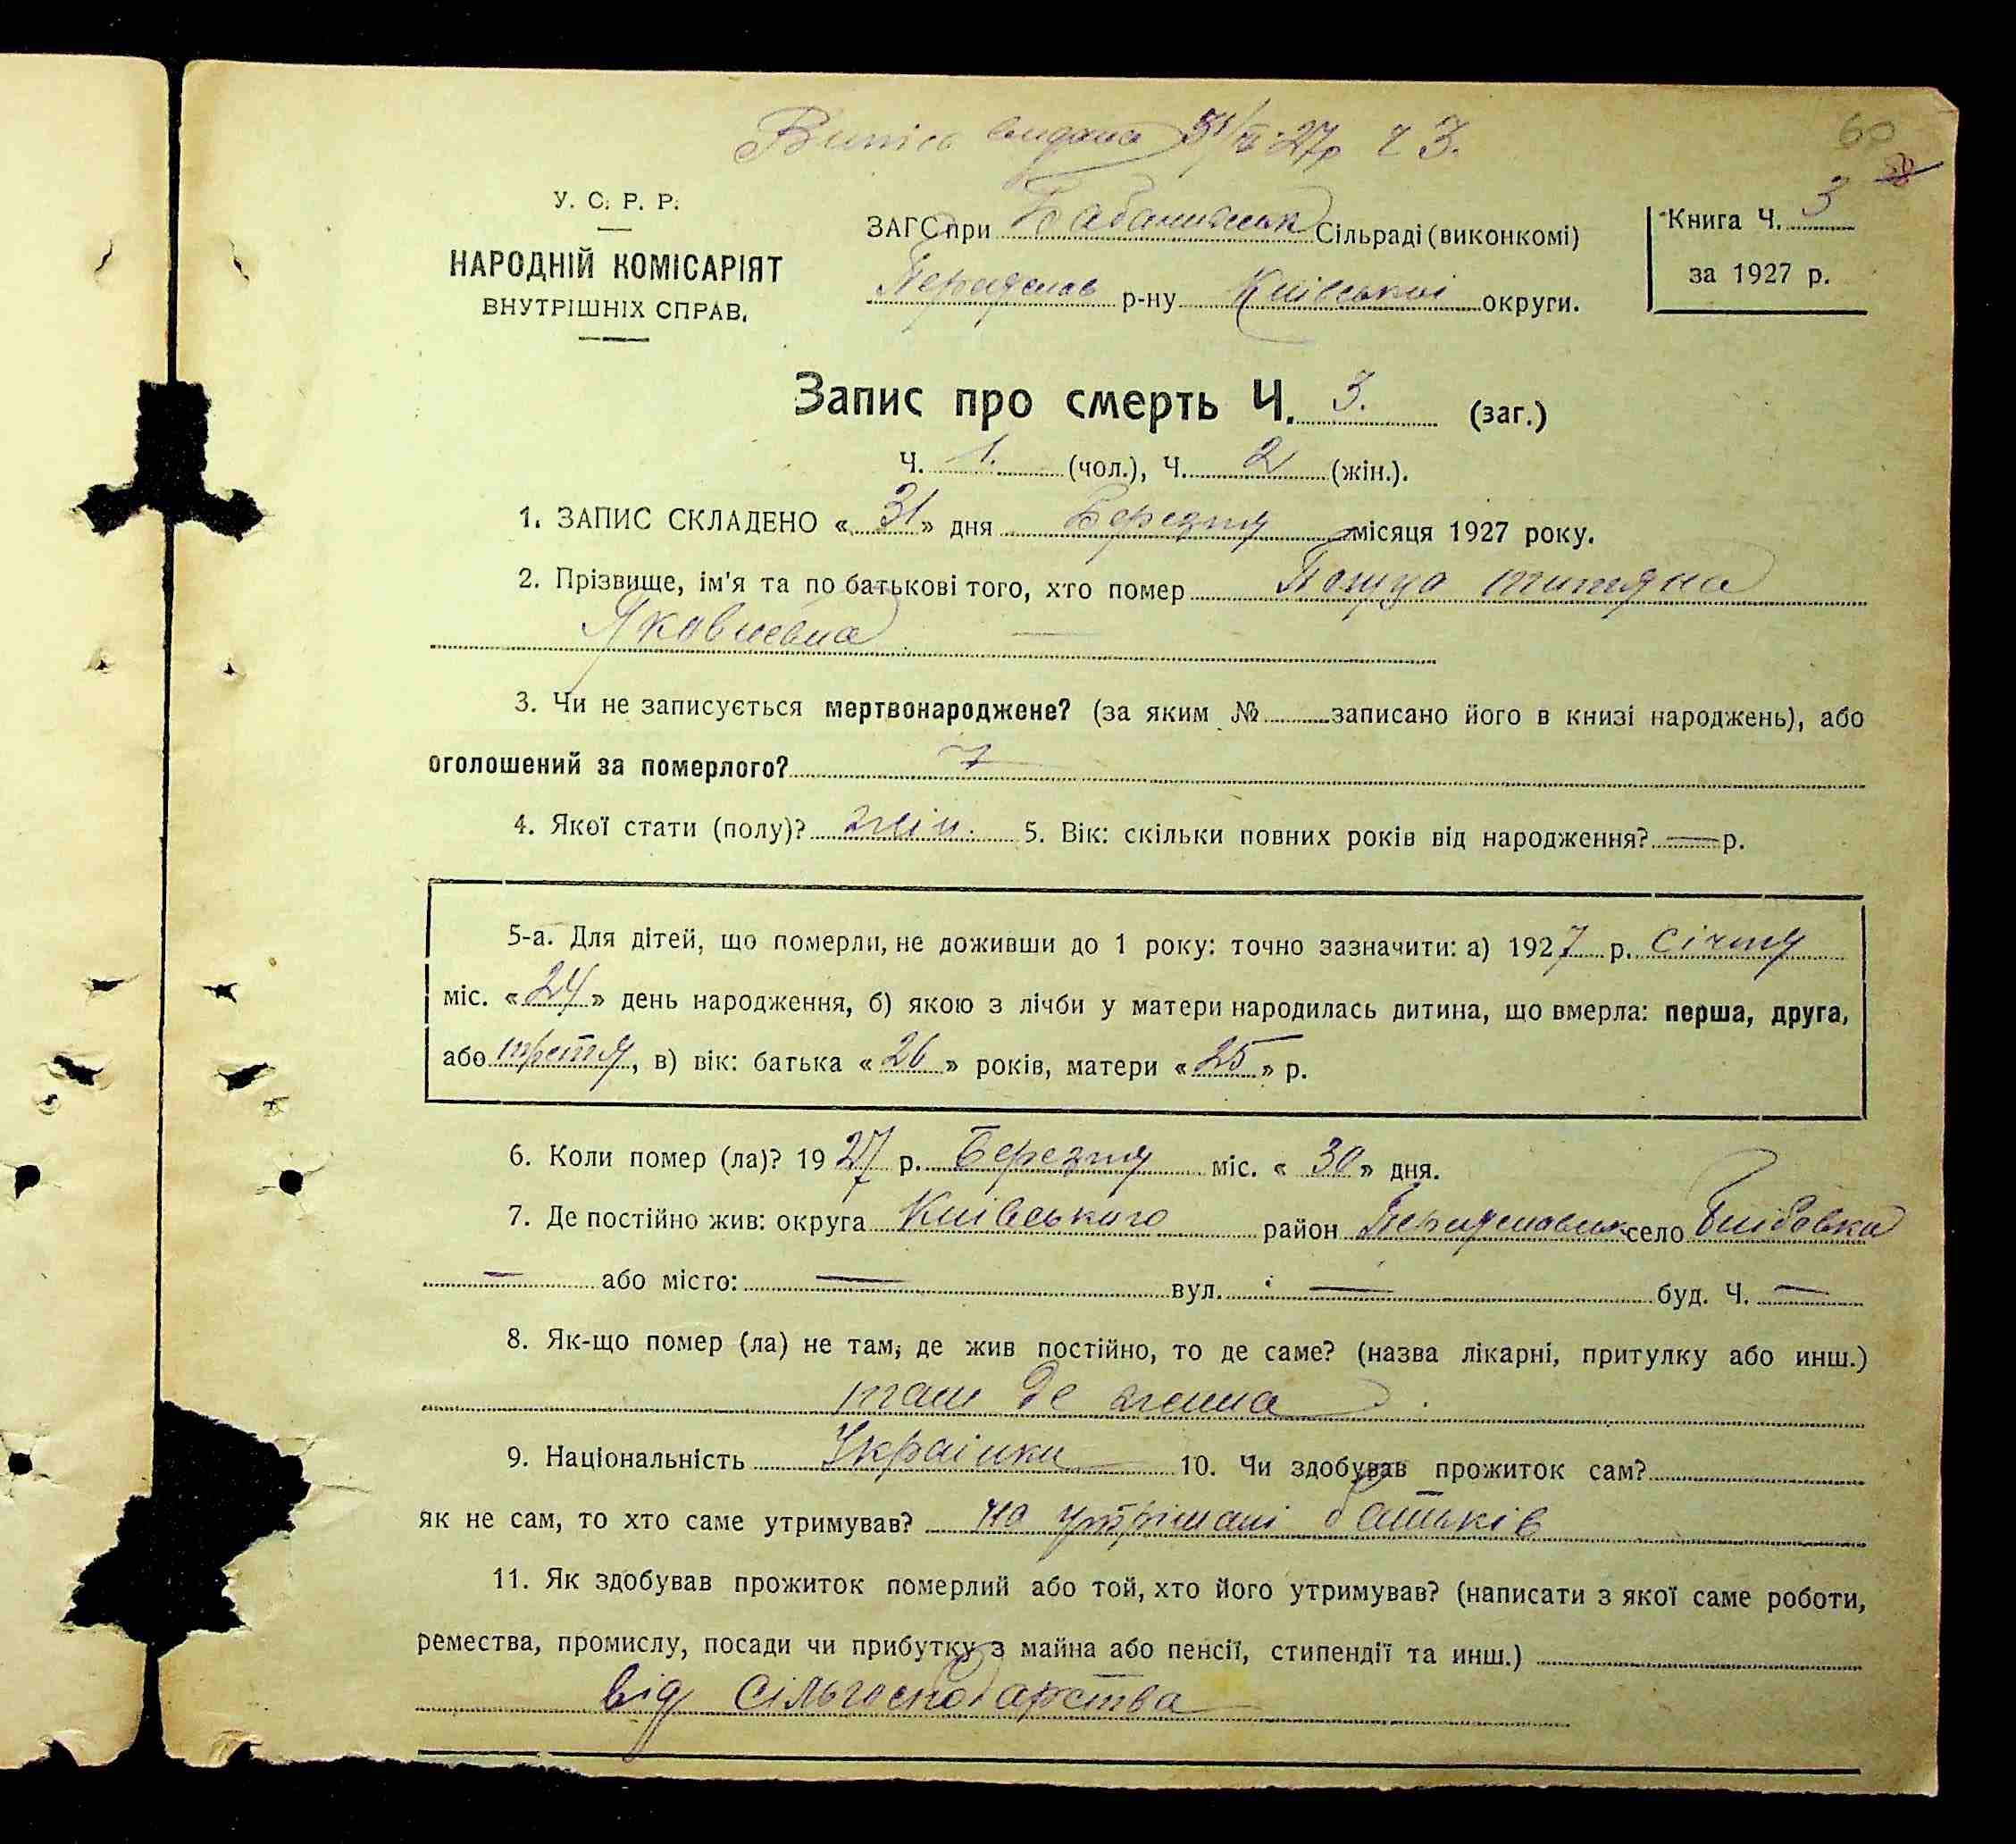 Випис видана 31/III 27р Ч 3.
60
28
У. С. Р. Р.
НАРОДНІЙ КОМІСАРІЯТ
ВНУТРІШНІХ СПРАВ.
ЗАГС при Сільраді (виконкомі)
р-ну Київської округи.
Книга Ч. 3
за 1927 р.
Запис про смерть Ч. 3. (заг.)
Ч. 1. (чол.), Ч. 2 (жін.).
1. ЗАПИС СКЛАДЕНО « 31 » дня Березня місяця 1927 року.
2. Прізвище, ім'я та по батькові того, хто помер титяна
Яковлевна
3. Чи не записується мертвонароджене? (за яким № записано його в книзі народжень), або
оголошений за померлого?
4. Якої стати (полу)? жін. 5. Вік: скільки повних років від народження? — р.
5-а. Для дітей, що померли, не доживши до 1 року: точно зазначити: а) 1927 р. Січня
міс. « 24 » день народження, б) якою з лічби у матери народилась дитина, що вмерла: перша, друга,
або третя, в) вік: батька « 26 » років, матери « 25 » р.
6. Коли помер (ла)? 1927 р. Березня міс. « 30 » дня.
7. Де постійно жив: округа Київського район село
— або місто: — вул. — буд. Ч. —
8. Як-що помер (ла) не там, де жив постійно, то де саме? (назва лікарні, притулку або инш.)
там де жила
9. Національність Українка 10. Чи здобував прожиток сам?
як не сам, то хто саме утримував? на утрімані батьків
11. Як здобував прожиток померлий або той, хто його утримував? (написати з якої саме роботи,
ремества, промислу, посади чи прибутку з майна або пенсії, стипендії та инш.)
від сільгосподарства